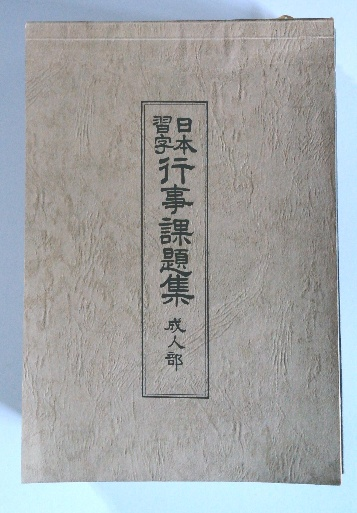 日本習字行事課題集 成人部